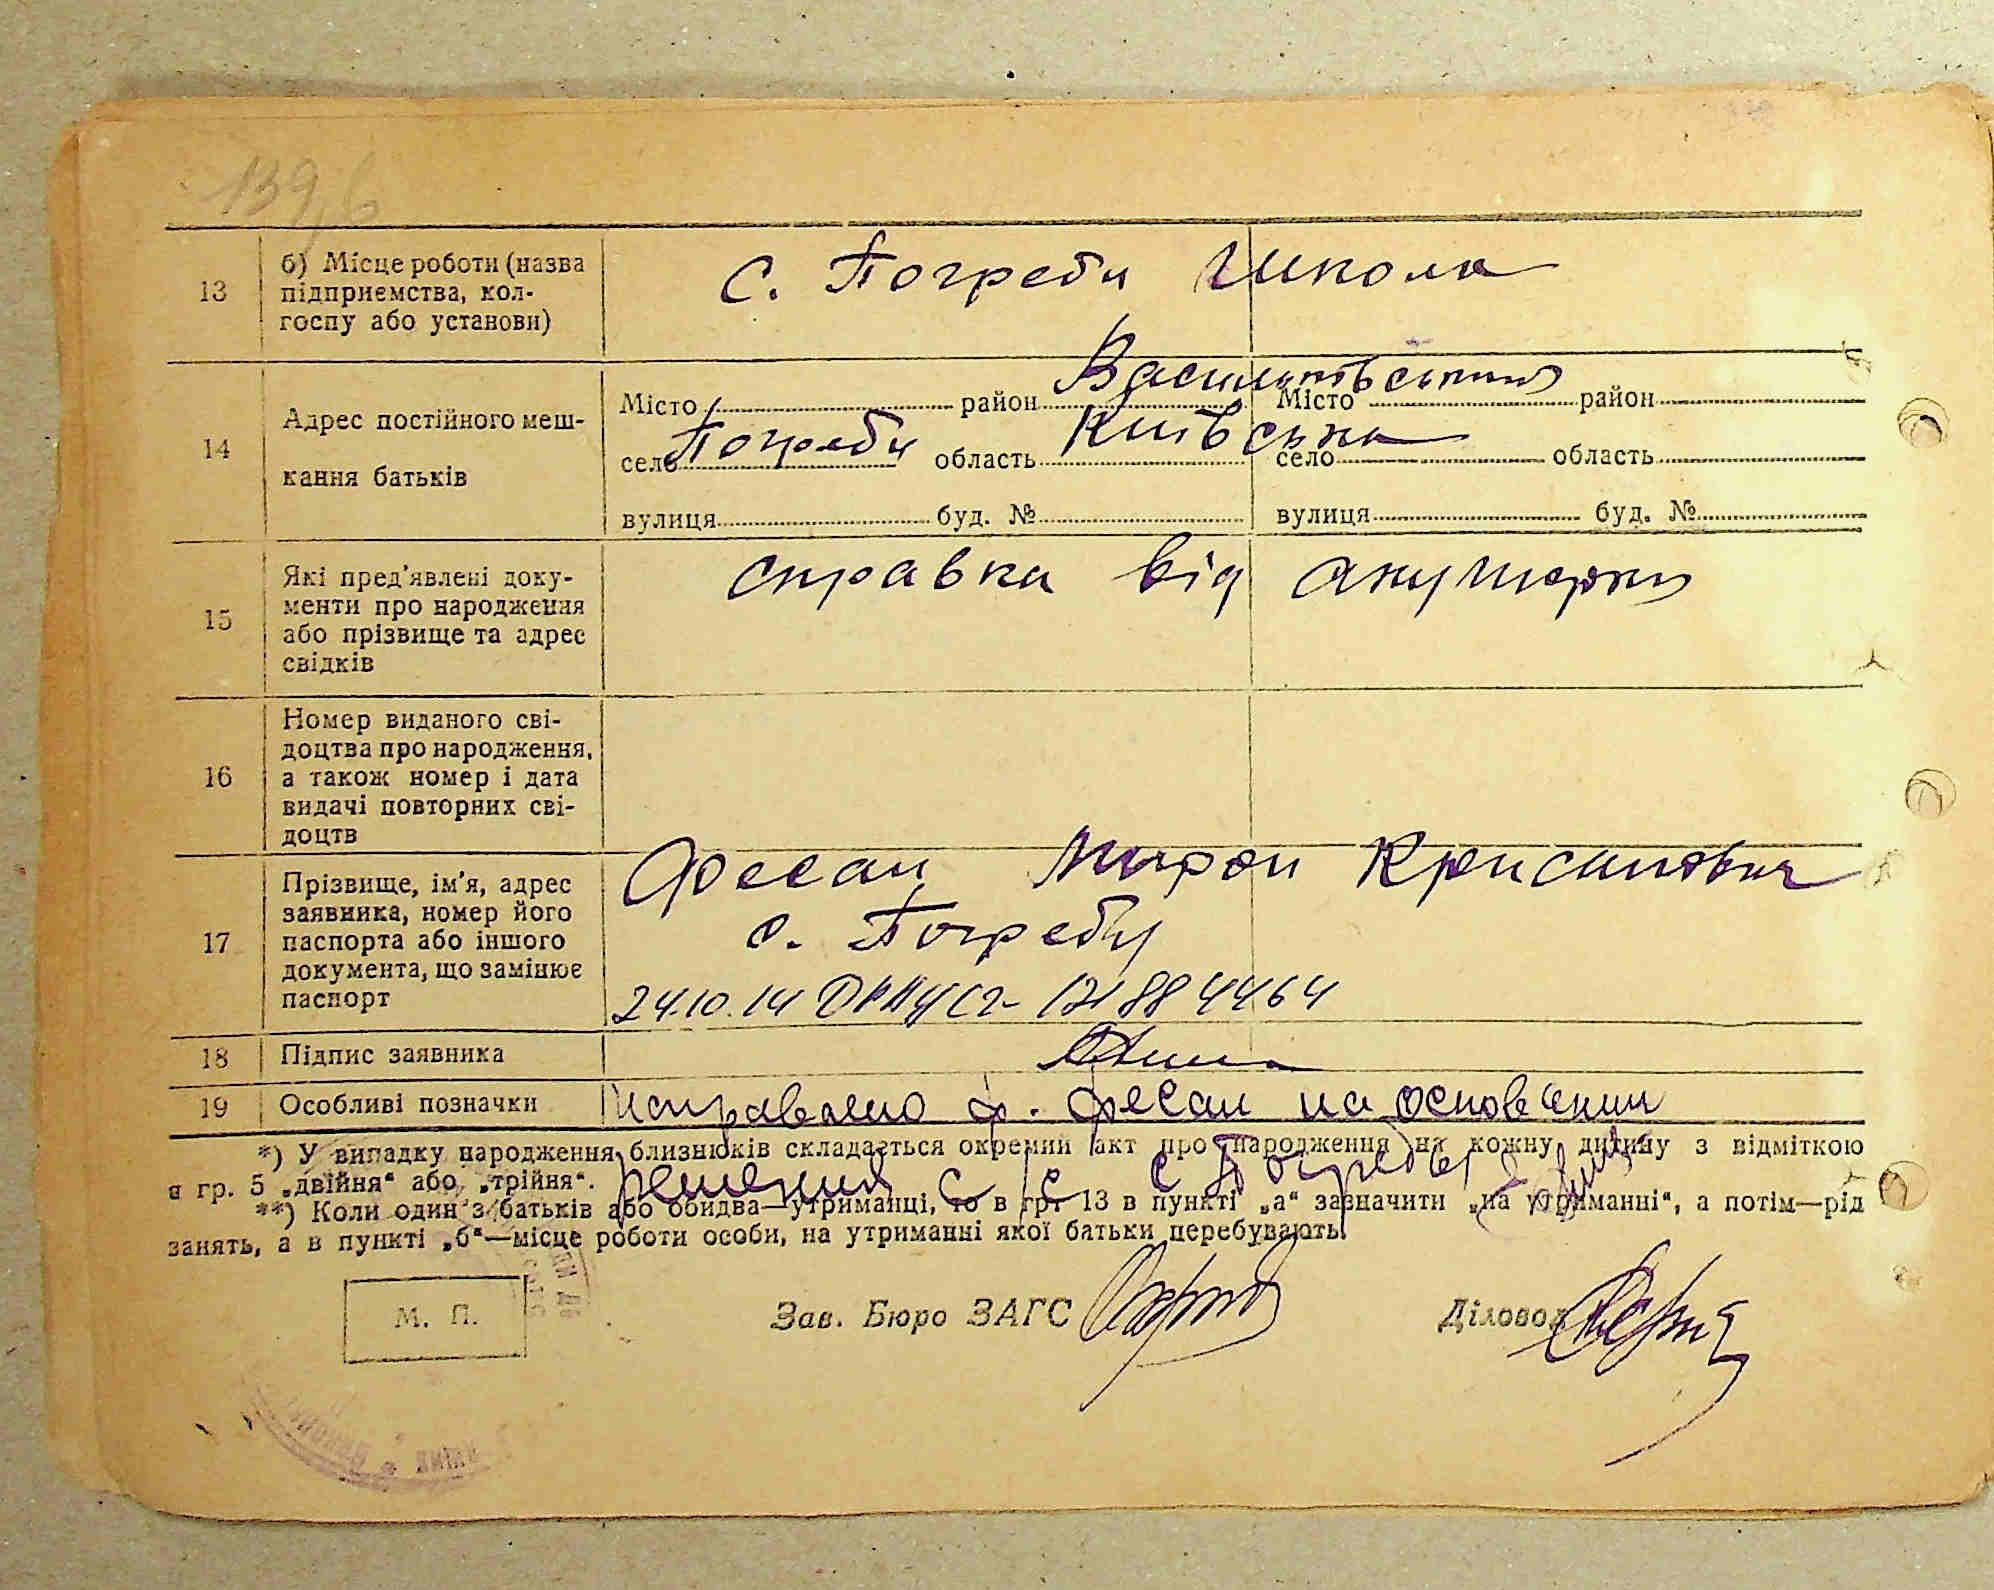 139,б
13
б) Місце роботи (назва
підприємства, кол-
госпу або установи)
с. Погреби Школа
14
Адрес постійного меш-
кання батьків
Васильківський
Місто район Місто район
Погреби Київська
село область село область
вулиця буд. № вулиця буд. №
15
Які пред'явлені доку-
менти про народження
або прізвище та адрес
свідків
справка від акушерки
16
Номер виданого сві-
доцтва про народження,
а також номер і дата
видачі повторних сві-
доцтв
17
Прізвище, ім'я, адрес
заявника, номер його
паспорта або іншого
документа, що замінює
паспорт
Фесан Мирон
с. Погреби
24.10.14
18
Підпис заявника
19
Особливі позначки
исправлено ф. Фесан на основении
*) У випадку народження близнюків складається окремий акт про народження на кожну дитину з відміткою
решения с/с с Погребы
в гр. 5 „двійня“ або „трійня“.
**) Коли один з батьків або обидва—утриманці, то в гр. 13 в пункті „а“ зазначити „на утриманні“, а потім—рід
занять, а в пункті „б“—місце роботи особи, на утриманні якої батьки перебувають.
М. П.
Зав. Бюро ЗАГС
Діловод